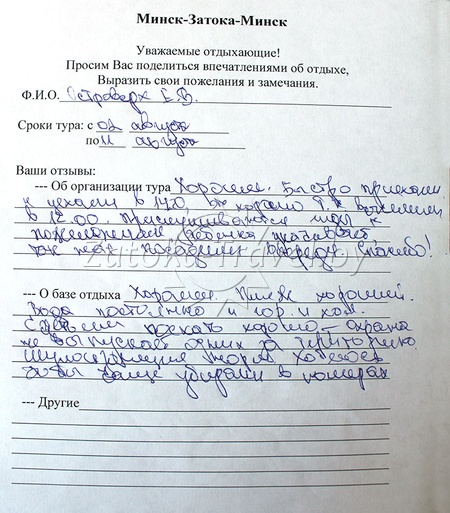 Минск-Затока-Минск
Уважаемые отдыхающие!
Просим Вас поделиться впечатлениями об отдыхе,
Выразить свои пожелания и замечания.
Ф.И.О. Остраверх Е.В.
Сроки тура: с 02 августа
по 11 августа
Ваши отзывы:
--- Об организации тура Хорошее. Быстро приехали
и уехали в хорошо
в 12.00. Прислушиваются
пожеланиям ребенка
Спасибо!
--- О базе отдыха Хорошее. Пляж хороший.
Вода постоянно и гор. и хол.
С детьми поехать хорошо – охрана
не выпускает одних за территорию.
Хотелось
чтобы чаще убирали в номерах
--- Другие
ZatokaTravel.by